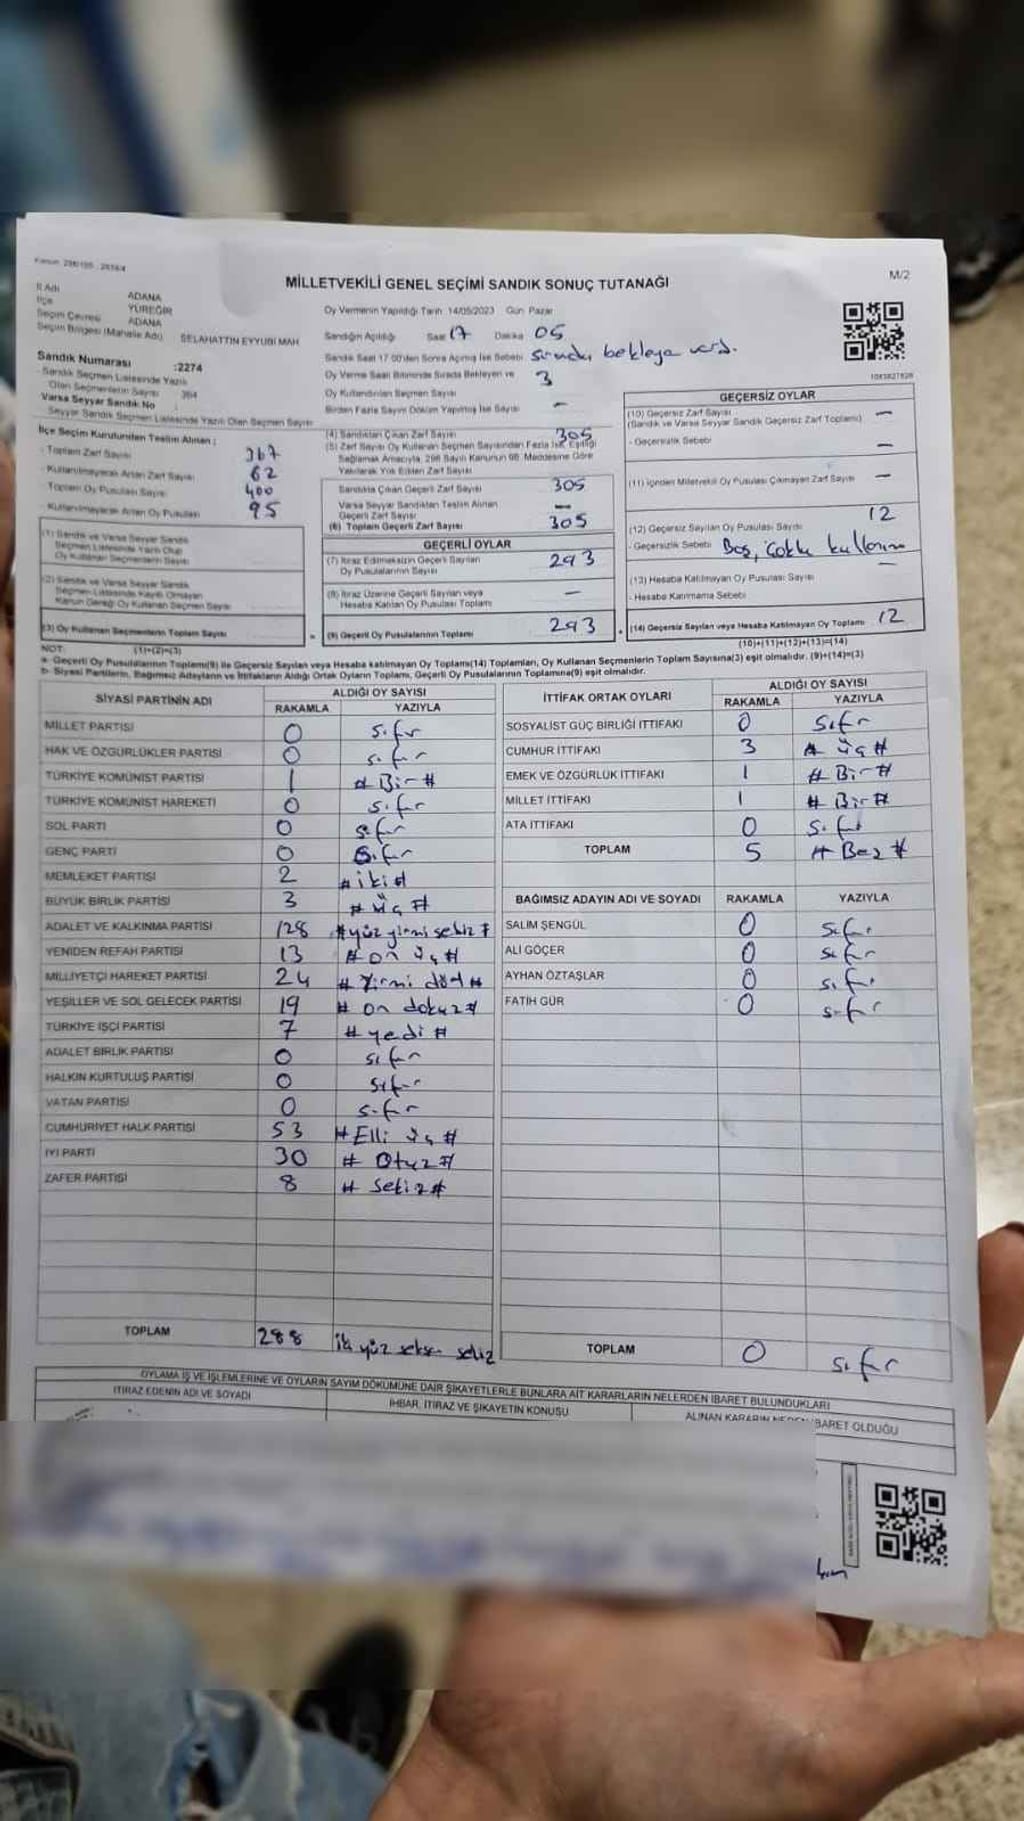 MİLLETVEKİLİ GENEL SEÇİMİ SANDIK SONUÇ TUTANAĞI
M/2
İl Adı ADANA
İlçe YÜREĞİR
Seçim Çevresi ADANA
Seçim Bölgesi (Mahalle Adı) SELAHATTİN EYYUBİ MAH
Sandık Numarası :2274
Sandık Seçmen Listesinde Yazılı
Olan Seçmenlerin Sayısı 364
Varsa Seyyar Sandık No
Seyyar Sandık Seçmen Listesinde Yazılı Olan Seçmen Sayısı
Oy Vermenin Yapıldığı Tarih 14/05/2023 Gün Pazar
Sandığın Açıldığı Saat 17 Dakika 05
Sandık Saat 17:00'den Sonra Açılmış İse Sebebi sırada bekleyen vardı.
Oy Verme Saati Bitiminde Sırada Bekleyen ve 3
Oy Kullandırılan Seçmen Sayısı
Birden Fazla Sayım Döküm Yapılmış İse Sayısı –
İlçe Seçim Kurulundan Teslim Alınan ;
- Toplam Zarf Sayısı 367
- Kullanılmayarak Artan Zarf Sayısı 62
Toplam Oy Pusulası Sayısı 400
- Kullanılmayarak Artan Oy Pusulası 95
(1) Sandık ve Varsa Seyyar Sandık
Seçmen Listesinde Yazılı Olup
Oy Kullanan Seçmenlerin Sayısı
(2) Sandık ve Varsa Seyyar Sandık
Seçmen Listesinde Kayıtlı Olmayan
Kanun Gereği Oy Kullanan Seçmen Sayısı
(3) Oy Kullanan Seçmenlerin Toplam Sayısı
(1)+(2)=(3)
(4) Sandıktan Çıkan Zarf Sayısı 305
(5) Zarf Sayısı Oy Kullanan Seçmen Sayısından Fazla İse, Eşitliği
Sağlamak Amacıyla, 298 Sayılı Kanunun 98. Maddesine Göre
Yakılarak Yok Edilen Zarf Sayısı
Sandıkta Çıkan Geçerli Zarf Sayısı 305
Varsa Seyyar Sandıktan Teslim Alınan
Geçerli Zarf Sayısı –
(6) Toplam Geçerli Zarf Sayısı 305
GEÇERLİ OYLAR
(7) İtiraz Edilmeksizin Geçerli Sayılan
Oy Pusulalarının Sayısı 293
(8) İtiraz Üzerine Geçerli Sayılan veya
Hesaba Katılan Oy Pusulası Toplamı –
(9) Geçerli Oy Pusulalarının Toplamı 293
GEÇERSİZ OYLAR
(10) Geçersiz Zarf Sayısı
(Sandık ve Varsa Seyyar Sandık Geçersiz Zarf Toplamı) –
- Geçersizlik Sebebi –
(11) İçinden Milletvekili Oy Pusulası Çıkmayan Zarf Sayısı –
(12) Geçersiz Sayılan Oy Pusulası Sayısı 12
- Geçersizlik Sebebi Boş, çoklu kullanım
(13) Hesaba Katılmayan Oy Pusulası Sayısı –
- Hesaba Katılmama Sebebi
(14) Geçersiz Sayılan veya Hesaba Katılmayan Oy Toplamı 12
(10)+(11)+(12)+(13)=(14)
NOT:
a- Geçerli Oy Pusulalarının Toplamı(9) ile Geçersiz Sayılan veya Hesaba katılmayan Oy Toplamı(14) Toplamları, Oy Kullanan Seçmenlerin Toplam Sayısına(3) eşit olmalıdır. (9)+(14)=(3)
b- Siyasi Partilerin, Bağımsız Adayların ve İttifakların Aldığı Ortak Oyların Toplamı, Geçerli Oy Pusulalarının Toplamına(9) eşit olmalıdır.
SİYASİ PARTİNİN ADI ALDIĞI OY SAYISI
RAKAMLA YAZIYLA
MİLLET PARTİSİ 0 sıfır
HAK VE ÖZGÜRLÜKLER PARTİSİ 0 sıfır
TÜRKİYE KOMÜNİST PARTİSİ 1 # Bir #
TÜRKİYE KOMÜNİST HAREKETİ 0 sıfır
SOL PARTİ 0 sıfır
GENÇ PARTİ 0 sıfır
MEMLEKET PARTİSİ 2 # iki #
BÜYÜK BİRLİK PARTİSİ 3 # üç #
ADALET VE KALKINMA PARTİSİ 128 # yüz yirmi sekiz #
YENİDEN REFAH PARTİSİ 13 # on üç #
MİLLİYETÇİ HAREKET PARTİSİ 24 # Yirmi dört #
YEŞİLLER VE SOL GELECEK PARTİSİ 19 # on dokuz #
TÜRKİYE İŞÇİ PARTİSİ 7 # yedi #
ADALET BİRLİK PARTİSİ 0 sıfır
HALKIN KURTULUŞ PARTİSİ 0 sıfır
VATAN PARTİSİ 0 sıfır
CUMHURİYET HALK PARTİSİ 53 # Elli üç #
İYİ PARTİ 30 # Otuz #
ZAFER PARTİSİ 8 # sekiz #
TOPLAM 288 iki yüz seksen sekiz
İTTİFAK ORTAK OYLARI ALDIĞI OY SAYISI
RAKAMLA YAZIYLA
SOSYALİST GÜÇ BİRLİĞİ İTTİFAKI 0 sıfır
CUMHUR İTTİFAKI 3 # üç #
EMEK VE ÖZGÜRLÜK İTTİFAKI 1 # Bir #
MİLLET İTTİFAKI 1 # Bir #
ATA İTTİFAKI 0 sıfır
TOPLAM 5 # Beş #
BAĞIMSIZ ADAYIN ADI VE SOYADI RAKAMLA YAZIYLA
SALİM ŞENGÜL 0 sıfır
ALİ GÖÇER 0 sıfır
AYHAN ÖZTAŞLAR 0 sıfır
FATİH GÜR 0 sıfır
TOPLAM 0 sıfır
OYLAMA İŞ VE İŞLEMLERİNE VE OYLARIN SAYIM DÖKÜMÜNE DAİR ŞİKAYETLERLE BUNLARA AİT KARARLARIN NELERDEN İBARET BULUNDUKLARI
İTİRAZ EDENİN ADI VE SOYADI İHBAR, İTİRAZ VE ŞİKAYETİN KONUSU ALINAN KARARIN NEDEN İBARET OLDUĞU